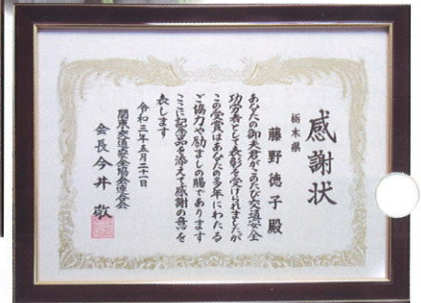 感謝状
栃木県
藤野徳子殿
あなたの御夫君がこのたび交通安全
功労者として表彰を受けられましたが
この受賞はあなたの多年にわたる
ご協力や励ましの賜であります
ここに記念品を添えて感謝の意を
表します
令和三年五月二十一日
関東交通安全協会連合会
会長今井敬